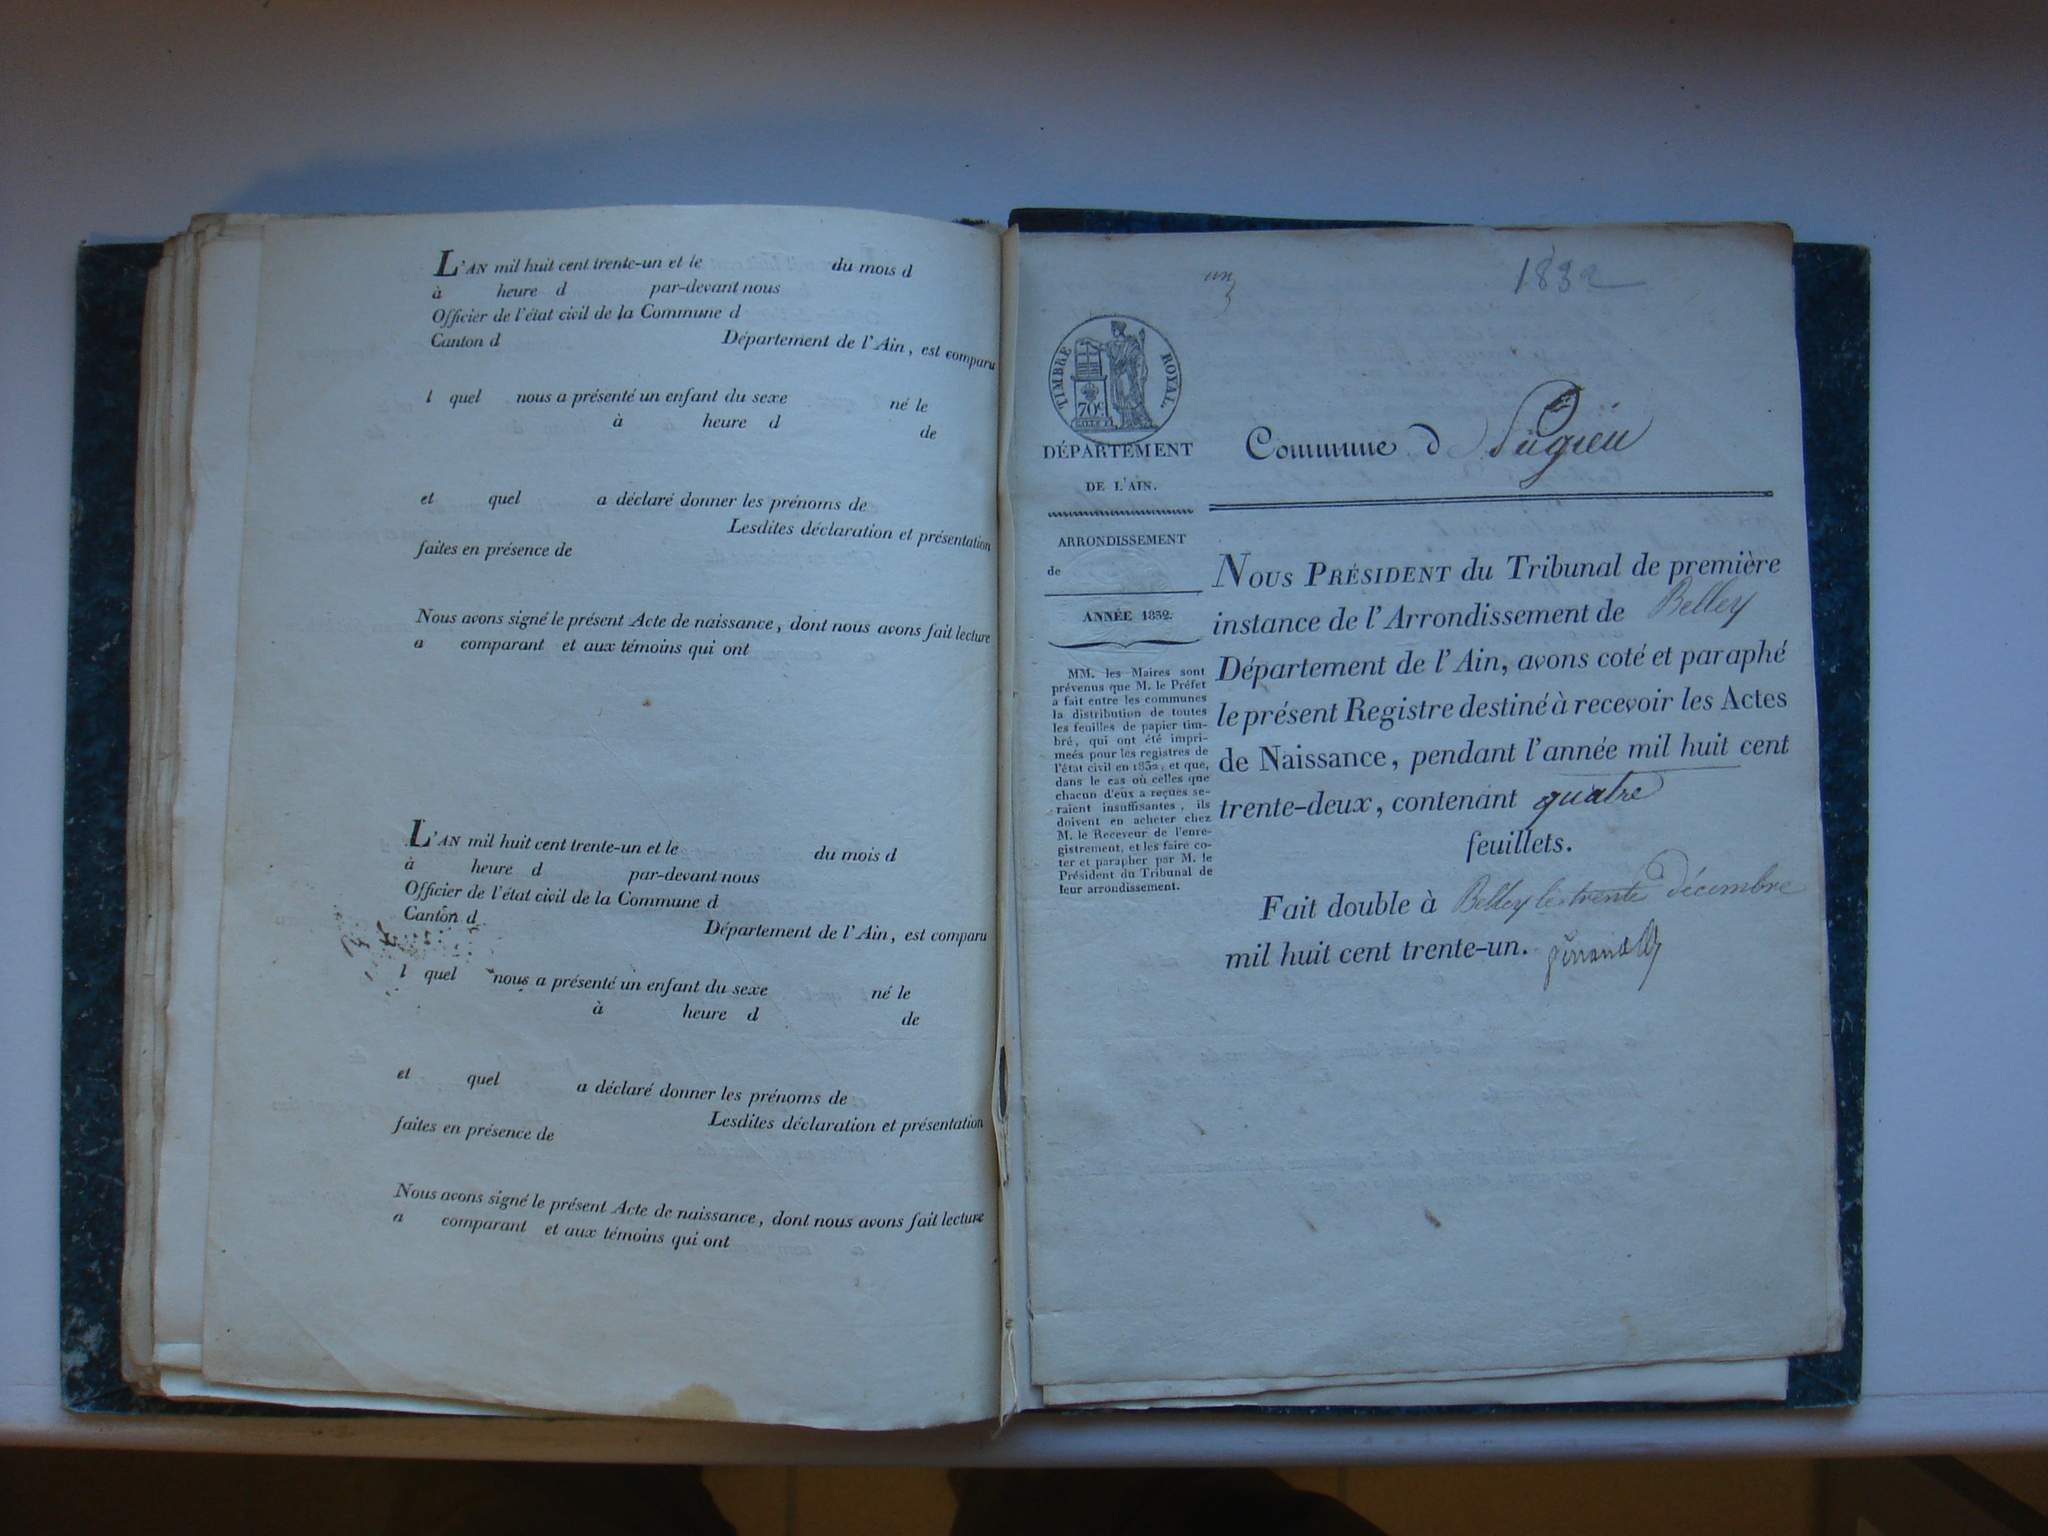 L'AN mil huit cent trente-un et le du mois d
à heure d par-devant nous
Officier de l'état civil de la Commune d
Canton d Département de l'Ain, est comparu
l quel nous a présenté un enfant du sexe né le
à heure d de
et quel a déclaré donner les prénoms de
Lesdites déclaration et présentation
faites en présence de
Nous avons signé le présent Acte de naissance, dont nous avons fait lecture
a comparant et aux témoins qui ont
L'AN mil huit cent trente-un et le du mois d
à heure d par-devant nous
Officier de l'état civil de la Commune d
Canton d Département de l'Ain, est comparu
l quel nous a présenté un enfant du sexe né le
à heure d de
et quel a déclaré donner les prénoms de
Lesdites déclaration et présentation
faites en présence de
Nous avons signé le présent Acte de naissance, dont nous avons fait lecture
a comparant et aux témoins qui ont
un
1832
TIMBRE ROYAL.
70c
DÉPARTEMENT
DE L'AIN.
ARRONDISSEMENT
de
ANNÉE 1832.
MM. les Maires sont
prévenus que M. le Préfet
a fait entre les communes
la distribution de toutes
les feuilles de papier tim-
bré, qui ont été impri-
meés pour les registres de
l'état civil en 1832, et que,
dans le cas où celles que
chacun d'eux a reçues se-
raient insuffisantes, ils
doivent en acheter chez
M. le Receveur de l'enre-
gistrement, et les faire co-
ter et parapher par M. le
Président du Tribunal de
leur arrondissement.
Commune d Pugieu
NOUS PRÉSIDENT du Tribunal de première
instance de l'Arrondissement de Belley
Département de l'Ain, avons coté et paraphé
le présent Registre destiné à recevoir les Actes
de Naissance, pendant l'année mil huit cent
trente-deux, contenant quatre
feuillets.
Fait double à Belley le trente décembre
mil huit cent trente-un.